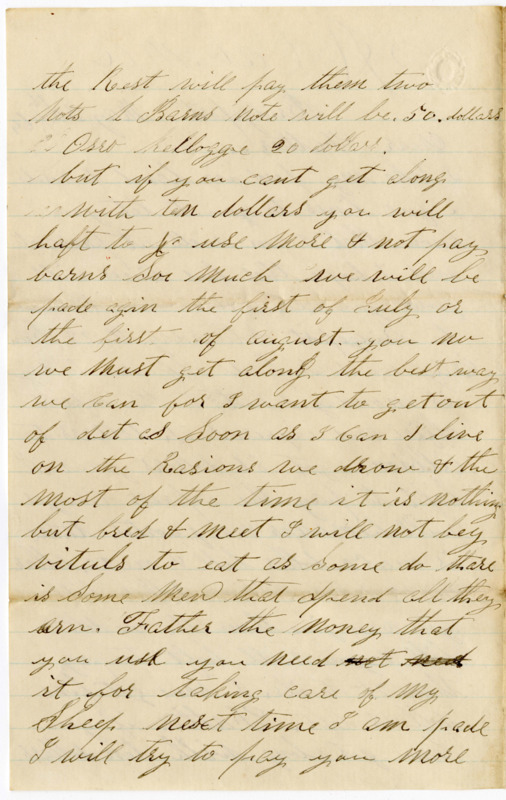 the Rest will pay them two
nots & Barns note will be. 50. dollars
Osro kellogge 20 dollars.
but if you cant get along
with ten dollars you will
haft to use more & not pay
barns Soe much we will be
pade agin the first of July or
the first of august. you no
we must get along the best way
we can for I want to get out
of det as Soon as I Can I live
on the Rasions we drow & the
most of the time it is nothing
but bred & meet I will not beg
vituls to eat as Some do thare
is Some men that Spend all they
arn. Father the money that
you use you need not need
it for taking care of my
Sheep next time I am pade
I will try to pay you more